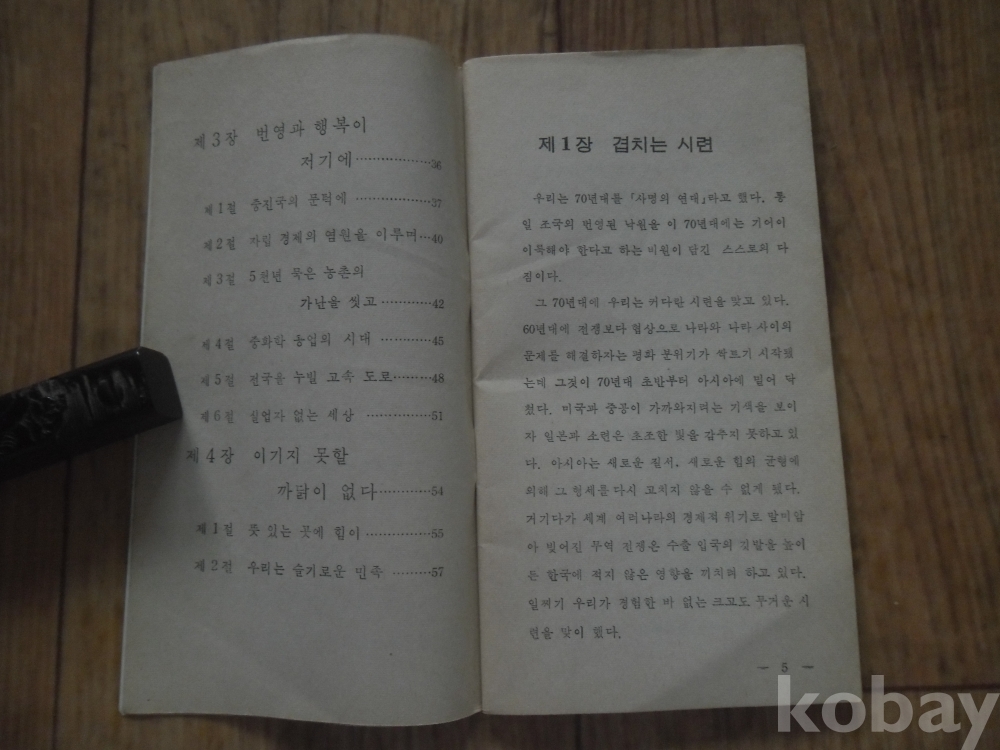 제 3 장 번영과 행복이
저기에 ……………… 36
제 1 절 중진국의 문턱에 …………… 37
제 2 절 자립 경제의 염원을 이루며 … 40
제 3 절 5천년 묵은 농촌의
가난을 씻고 ………… 42
제 4 절 중화학 공업의 시대 ………… 45
제 5 절 전국을 누빌 고속 도로 ……… 48
제 6 절 실업자 없는 세상 ………… 51
제 4 장 이기지 못할
까닭이 없다 ………… 54
제 1 절 뜻 있는 곳에 힘이 ………… 55
제 2 절 우리는 슬기로운 민족 ……… 57
제 1 장 겹치는 시련
우리는 70년대를 「사명의 연대」라고 했다. 통
일 조국의 번영된 낙원을 이 70년대에는 기어이
이룩해야 한다고 하는 비원이 담긴 스스로의 다
짐이다.
그 70년대에 우리는 커다란 시련을 맞고 있다.
60년대에 전쟁보다 협상으로 나라와 나라 사이의
문제를 해결하자는 평화 분위기가 싹트기 시작됐
는데 그것이 70년대 초반부터 아시아에 밀어 닥
쳤다. 미국과 중공이 가까와지려는 기색을 보이
자 일본과 소련은 초조한 빛을 감추지 못하고 있
다. 아시아는 새로운 질서, 새로운 힘의 균형에
의해 그 형세를 다시 고치지 않을 수 없게 됐다.
거기다가 세계 여러나라의 경제적 위기로 말미암
아 빚어진 무역 전쟁은 수출 입국의 깃발을 높이
든 한국에 적지 않은 영향을 끼치려 하고 있다.
일찌기 우리가 경험한 바 없는 크고도 무거운 시
련을 맞이 했다.
— 5 —
kobay